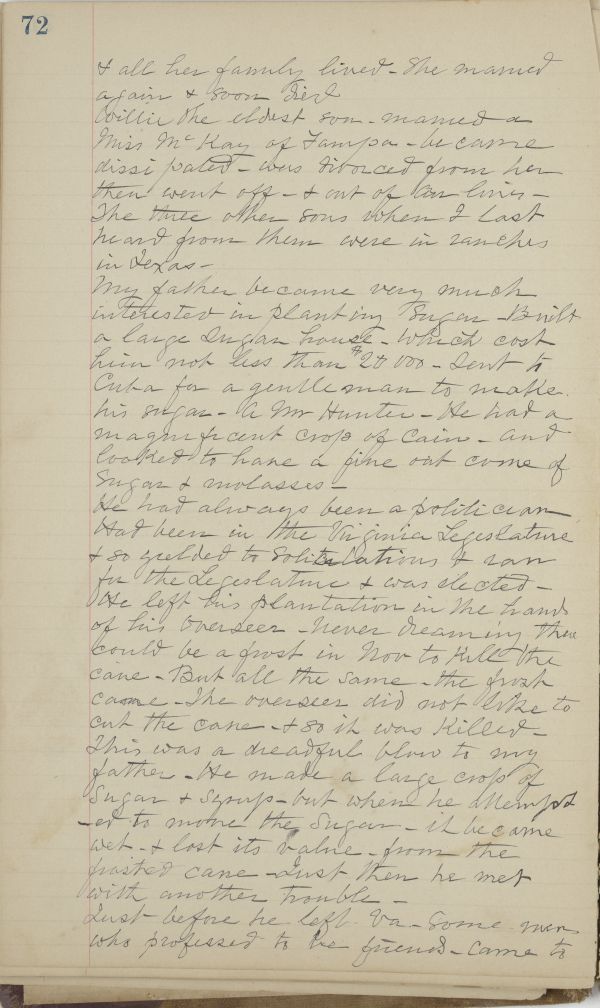 72
& all her family lived - She married
again & soon died
Willie the eldest son - married a
Miss McKay of Tampa - became
dissipated - was divorced from her
then went off - & out of our lives -
The three other sons when I last
heard from them were in ranches
in Texas -
My father became very much
interested in planting Sugar - Built
a large Sugar house - which cost
him not less than $20 000 - Sent to
Cuba for a gentleman to make
his sugar - a Mr Hunter - He had a
magnificent crop of Cain - and
looked to have a fine out come of
Sugar & molasses -
He had always been a politician
Had been in the Virginia Legeslature
& so yielded to Solicitations & ran
for the Legeslature & was elected -
He left his plantation in the hands
of his overseer - never dreaming there
could be a frost in Nov to Kill the
cane - But all the same - the frost
came - The overseer did not like to
cut the cane - & so it was Killed -
This was a dreadful blow to my
father - He made a large crop of
Sugar & Syrup - but when he attempt
-ed to move the Sugar - it became
wet - & lost its value - from the
frosted cane - Just then he met
with another trouble -
Just before he left Va - Some men
who professed to be friends - came to